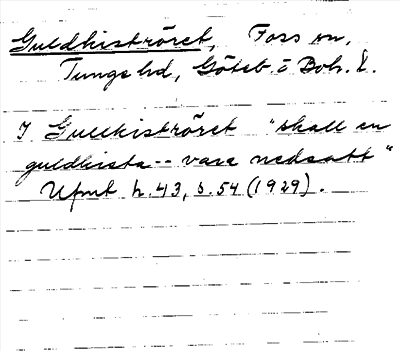 Guldkiströret, Foss sn,
Tunge hd, Göteb. o Boh. l.
I Gullkiströret "skall en
guldkista -- vara nedsatt"
Upmt h. 43, s. 54 (1929).